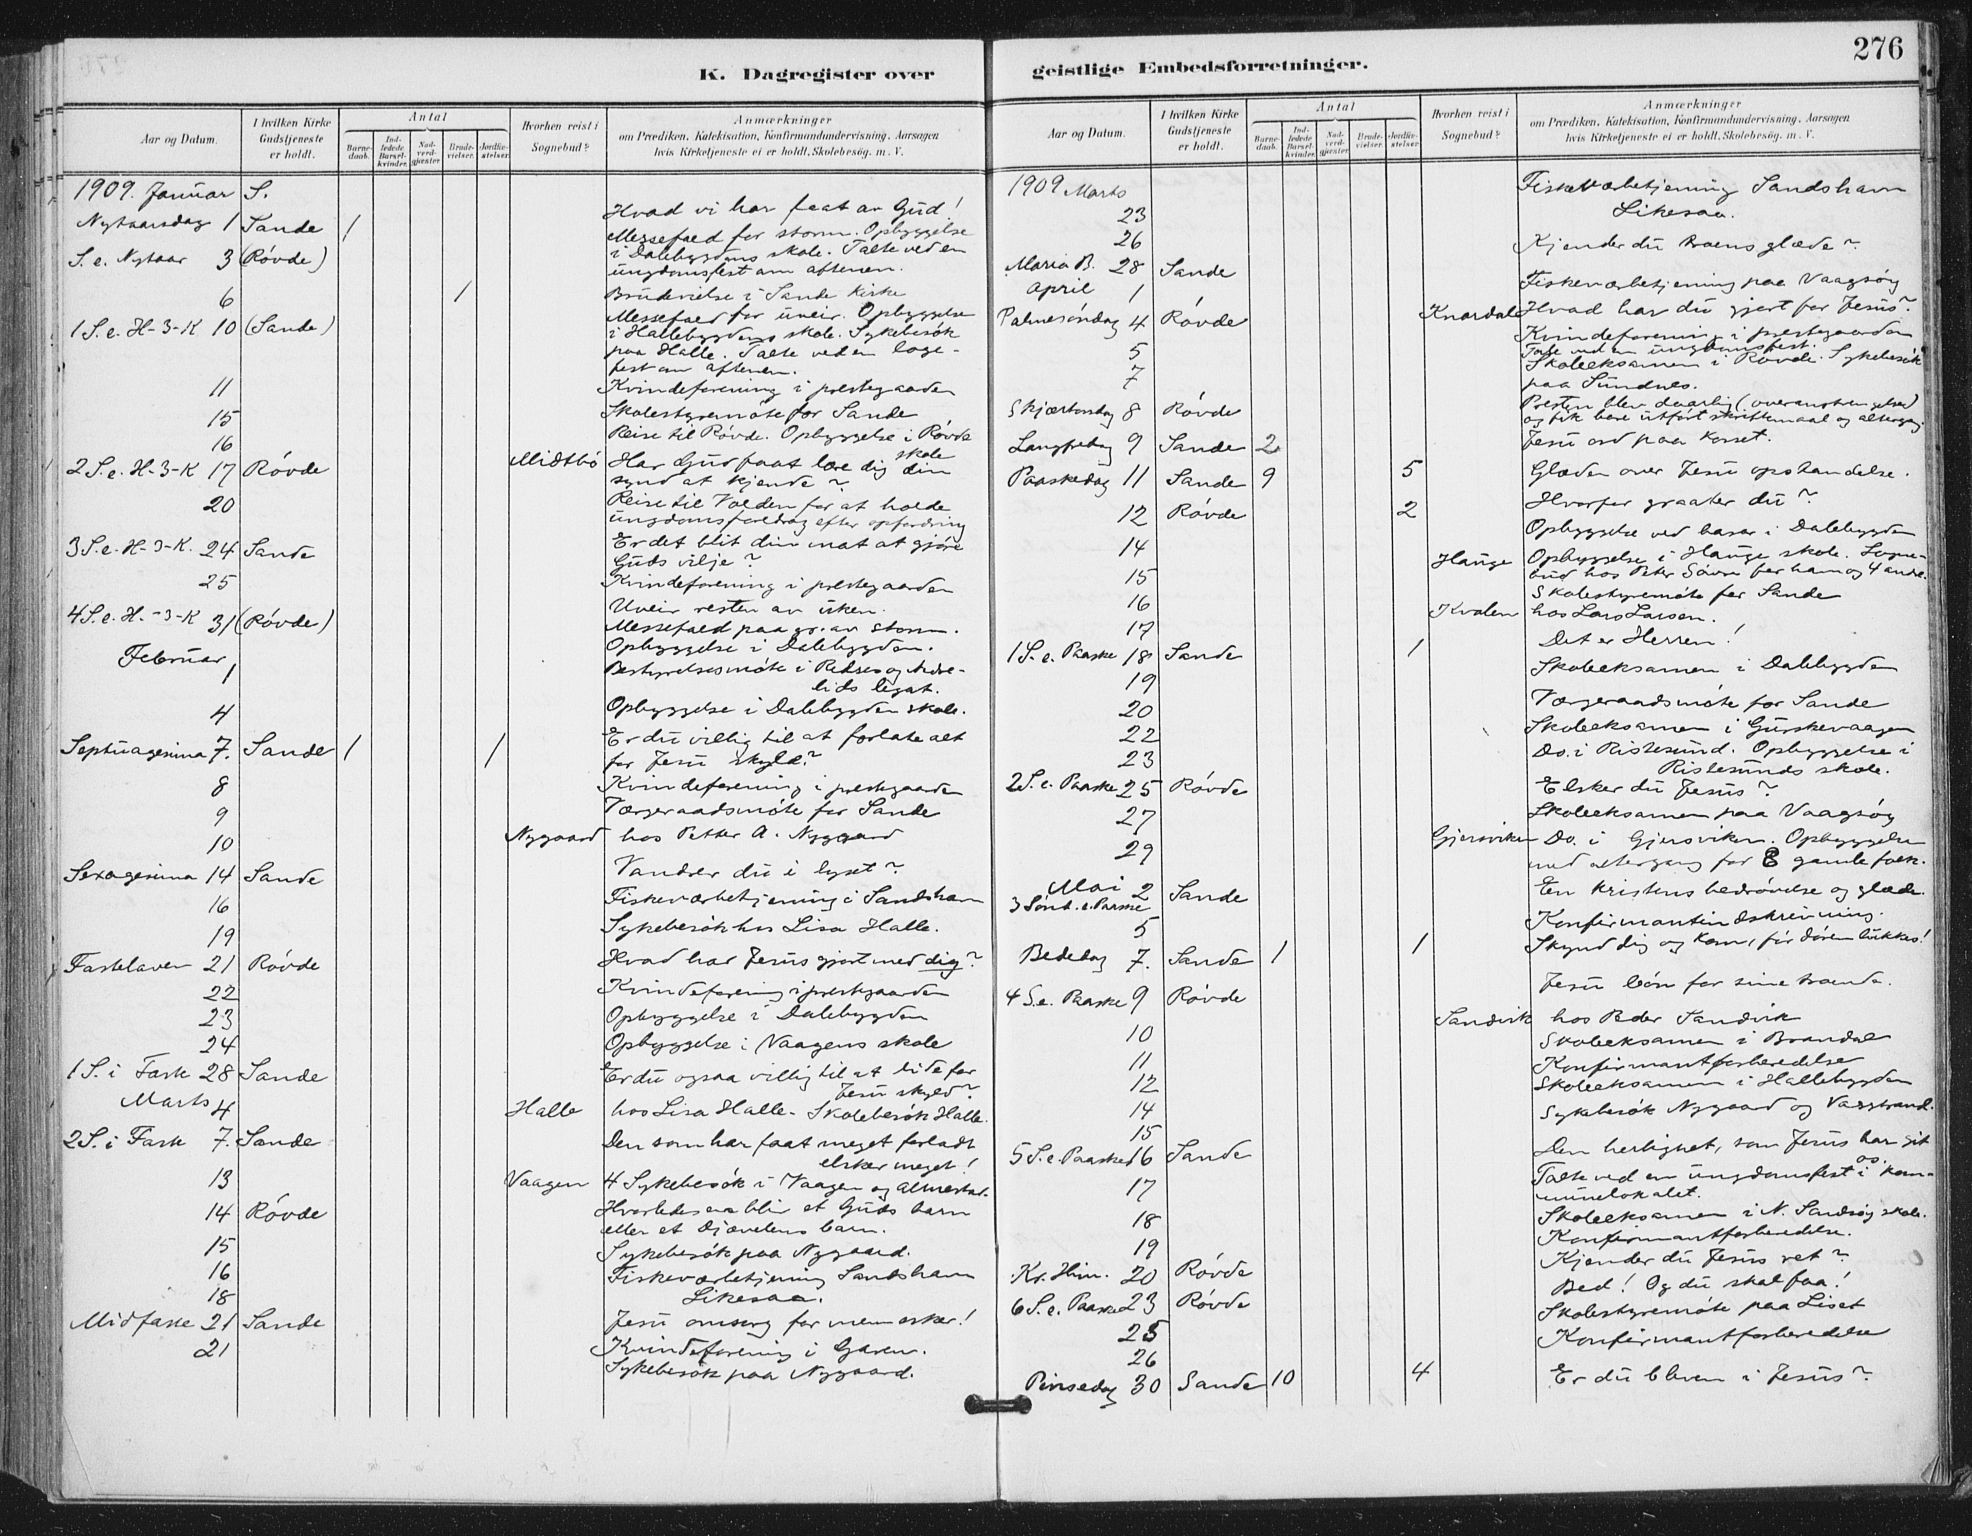 276
K. Dagregister over geistlige Embedsforretninger.
Aar og Datum. I hvilken Kirke Gudstjeneste er holdt. Antal Barnedaab. Indledede Barselkvinder. Nadverdgjæster Brudevielser. Jordfæstelser. Hvorhen reist i Sognebud? Anmærkninger om Prædiken, Katekisation, Konfirmandundervisning, Aarsagen hvis Kirketjeneste ei er holdt, Skolebesøg. m. V.
1909. Januar S.
Nytaarsdag 1 Sande 1 Hvad vi har faat av Gud!
S. e. Nytaar 3 (Røvde) Messefald for storm. Opbyggelse
i Dalebygdens skole. Talte ved en
ungdomsfest om aftenen.
6 1 Brudevielse i Sande kirke
1 S. e. H-3-K 10 (Sande) Messefald for uveir. Opbyggelse
i Hallebygdens skole. Sykebesøk
paa Halle. Talte ved en loge-
fest om aftenen.
11 Kvindeforening i prestegaarden
15 Skolestyremøte for Sande
16 Reise til Røvde. Opbyggelse i Røvde
skole
2 S. e. H-3-K 17 Røvde Midtbø Har Gud faat lære dig din
synd at kjende?
20 Reise til Volden for at holde
ungdomsforedrag efter opfordring
3 S. e. H-3-K. 24 Sande Er det blit din mat at gjøre
Guds vilje?
25 Kvindeforening i prestegaarden
Uveir resten av uken.
4 S. e. H.-3-K 31 (Røvde) Messefald paa gr. av storm.
Opbyggelse i Dalebygden.
Februar 1 Bestyrelsesmøte i
lids legat.
4 Opbyggelse i Dalebygden skole.
Septuagesima 7. Sande 1 1 Er du villig til at forlate alt
for Jesu skyld?
8 Kvindeforening i prestegaarden
9 Værgeraadsmøte for Sande
10 Nygaard hos Petter A. Nygaard
Sexagesima 14 Sande Vandrer du i lyset?
16 Fiskeværbetjening i Sandsham
19 Sykebesøk hos Lisa Halle.
Fastelaven 21 Røvde Hvad har Jesus gjort med dig?
22 Kvindeforening i prestegaarden
23 Opbyggelse i Dalebygden
24 Opbyggelse i Vaagens skole
1 S. i Fast 28 Sande Er du ogsaa villig til at lide for
Jesu skyld?
Marts 4 Halle hos Lisa Halle - Skolebesøk Halle.
2 S. i Fask 7. Sande Den som har faat meget forladt
elsker meget!
13 Vaagen 4 Sykebesøk i Vaagen og
14 Røvde Hvorledes en blir et Guds barn
eller et Djævelens barn.
15 Sykebesøk paa Nygaard.
16 Fiskeværbetjening Sandsham
18 Likesaa.
Midfaste 21 Sande Jesu omsorg for mennesker!
21 Kvindeforening i Garen.
Sykebesøk paa Nygaard.
Aar og Datum. I hvilken Kirke Gudstjeneste er holdt. Antal Barnedaab. Indledede Barselkvinder. Nadverdgjæster Brudevielser. Jordfæstelser. Hvorhen reist i Sognebud? Anmærkninger om Prædiken, Katekisation, Konfirmandundervisning, Aarsagen hvis Kirketjeneste ei er holdt, Skolebesøg. m. V.
1909 Marts
23 Fiskeværbetjening Sandsham
26 Likesaa.
Maria B. 28 Sande Kjender du troens glæde?
April 1 Fiskeværbetjening paa Vaagsøy
Palmesøndag 4 Røvde Knardal Hvad har du gjort for Jesus?
5 Kvindeforening i prestegaarden
Talte ved en ungdomsfest.
7 Skoleeksamen i Røvde. Sykebesøk
paa Sundnes.
Skjærtorsdag 8 Røvde Presten blev daarlig (overanstrengelse)
og fik bare utført skriftemaal og altergang
Langfredag 9 Sande 2 Jesu ord paa korset.
Paaskedag 11 Sande 9 5 Glæden over Jesu opstandelse.
12 Røvde 2 Hvorfor graater du?
14 Opbyggelse ved basar i Dalebygden
15 Hauge Opbyggelse i Hauge skole. Sogne-
bud hos Peter for ham og 4 andre.
16 Skolestyremøte for Sande
17 Kvalen hos Lars Larsen.
1 S. e. Paaske 18 Sande 1 Det er Herren!
19 Skoleeksamen i Dalebygden
20 Værgeraadsmøte for Sande
22 Skoleeksamen i Gurskevaagen
23 Do. i Ristesund. Opbyggelse i
Ristesunds skole.
2 S. e. Paaske 25 Røvde Elsker du Jesus?
27 Skoleeksamen paa Vaagsøy
29 Gjersviken Do. i Gjersviken. Opbyggelse
med altergang for 8 gamle folk.
Mai 2 Sande En kristens bedrøvelse og glæde.
3 Sønd. e. Paaske
5 Konfirmantindskrivning.
Bededag 7. Sande 1 1 Skynd dig og kom, før døren lukkes!
4 S. e. Paaske 9 Røvde Jesu bøn for sine
10 Sandvik hos Peder Sandvik
11 Skoleeksamen i Brandal
12 Konfirmantforberedelse
14 Skoleeksamen i Hallebygden
15 Sykebesøk Nygaard og
5 S. e. Paaske 16 Sande Den herlighet, som Jesus har git
os.
17 Talte ved en ungdomsfest i kom-
munelokalet.
18 Skoleeksamen i N. Sandsøy skole.
19 Konfirmantforberedelse.
Kr. Him. 20 Røvde Kjender du Jesus ret?
6 S. e. Paaske 23 Røvde Bed! Og du skal faa!
25 Skolestyremøte paa Liset
26 Konfirmantforberedelse
Pinsedag 30 Sande 10 4 Er du bleven i Jesus?